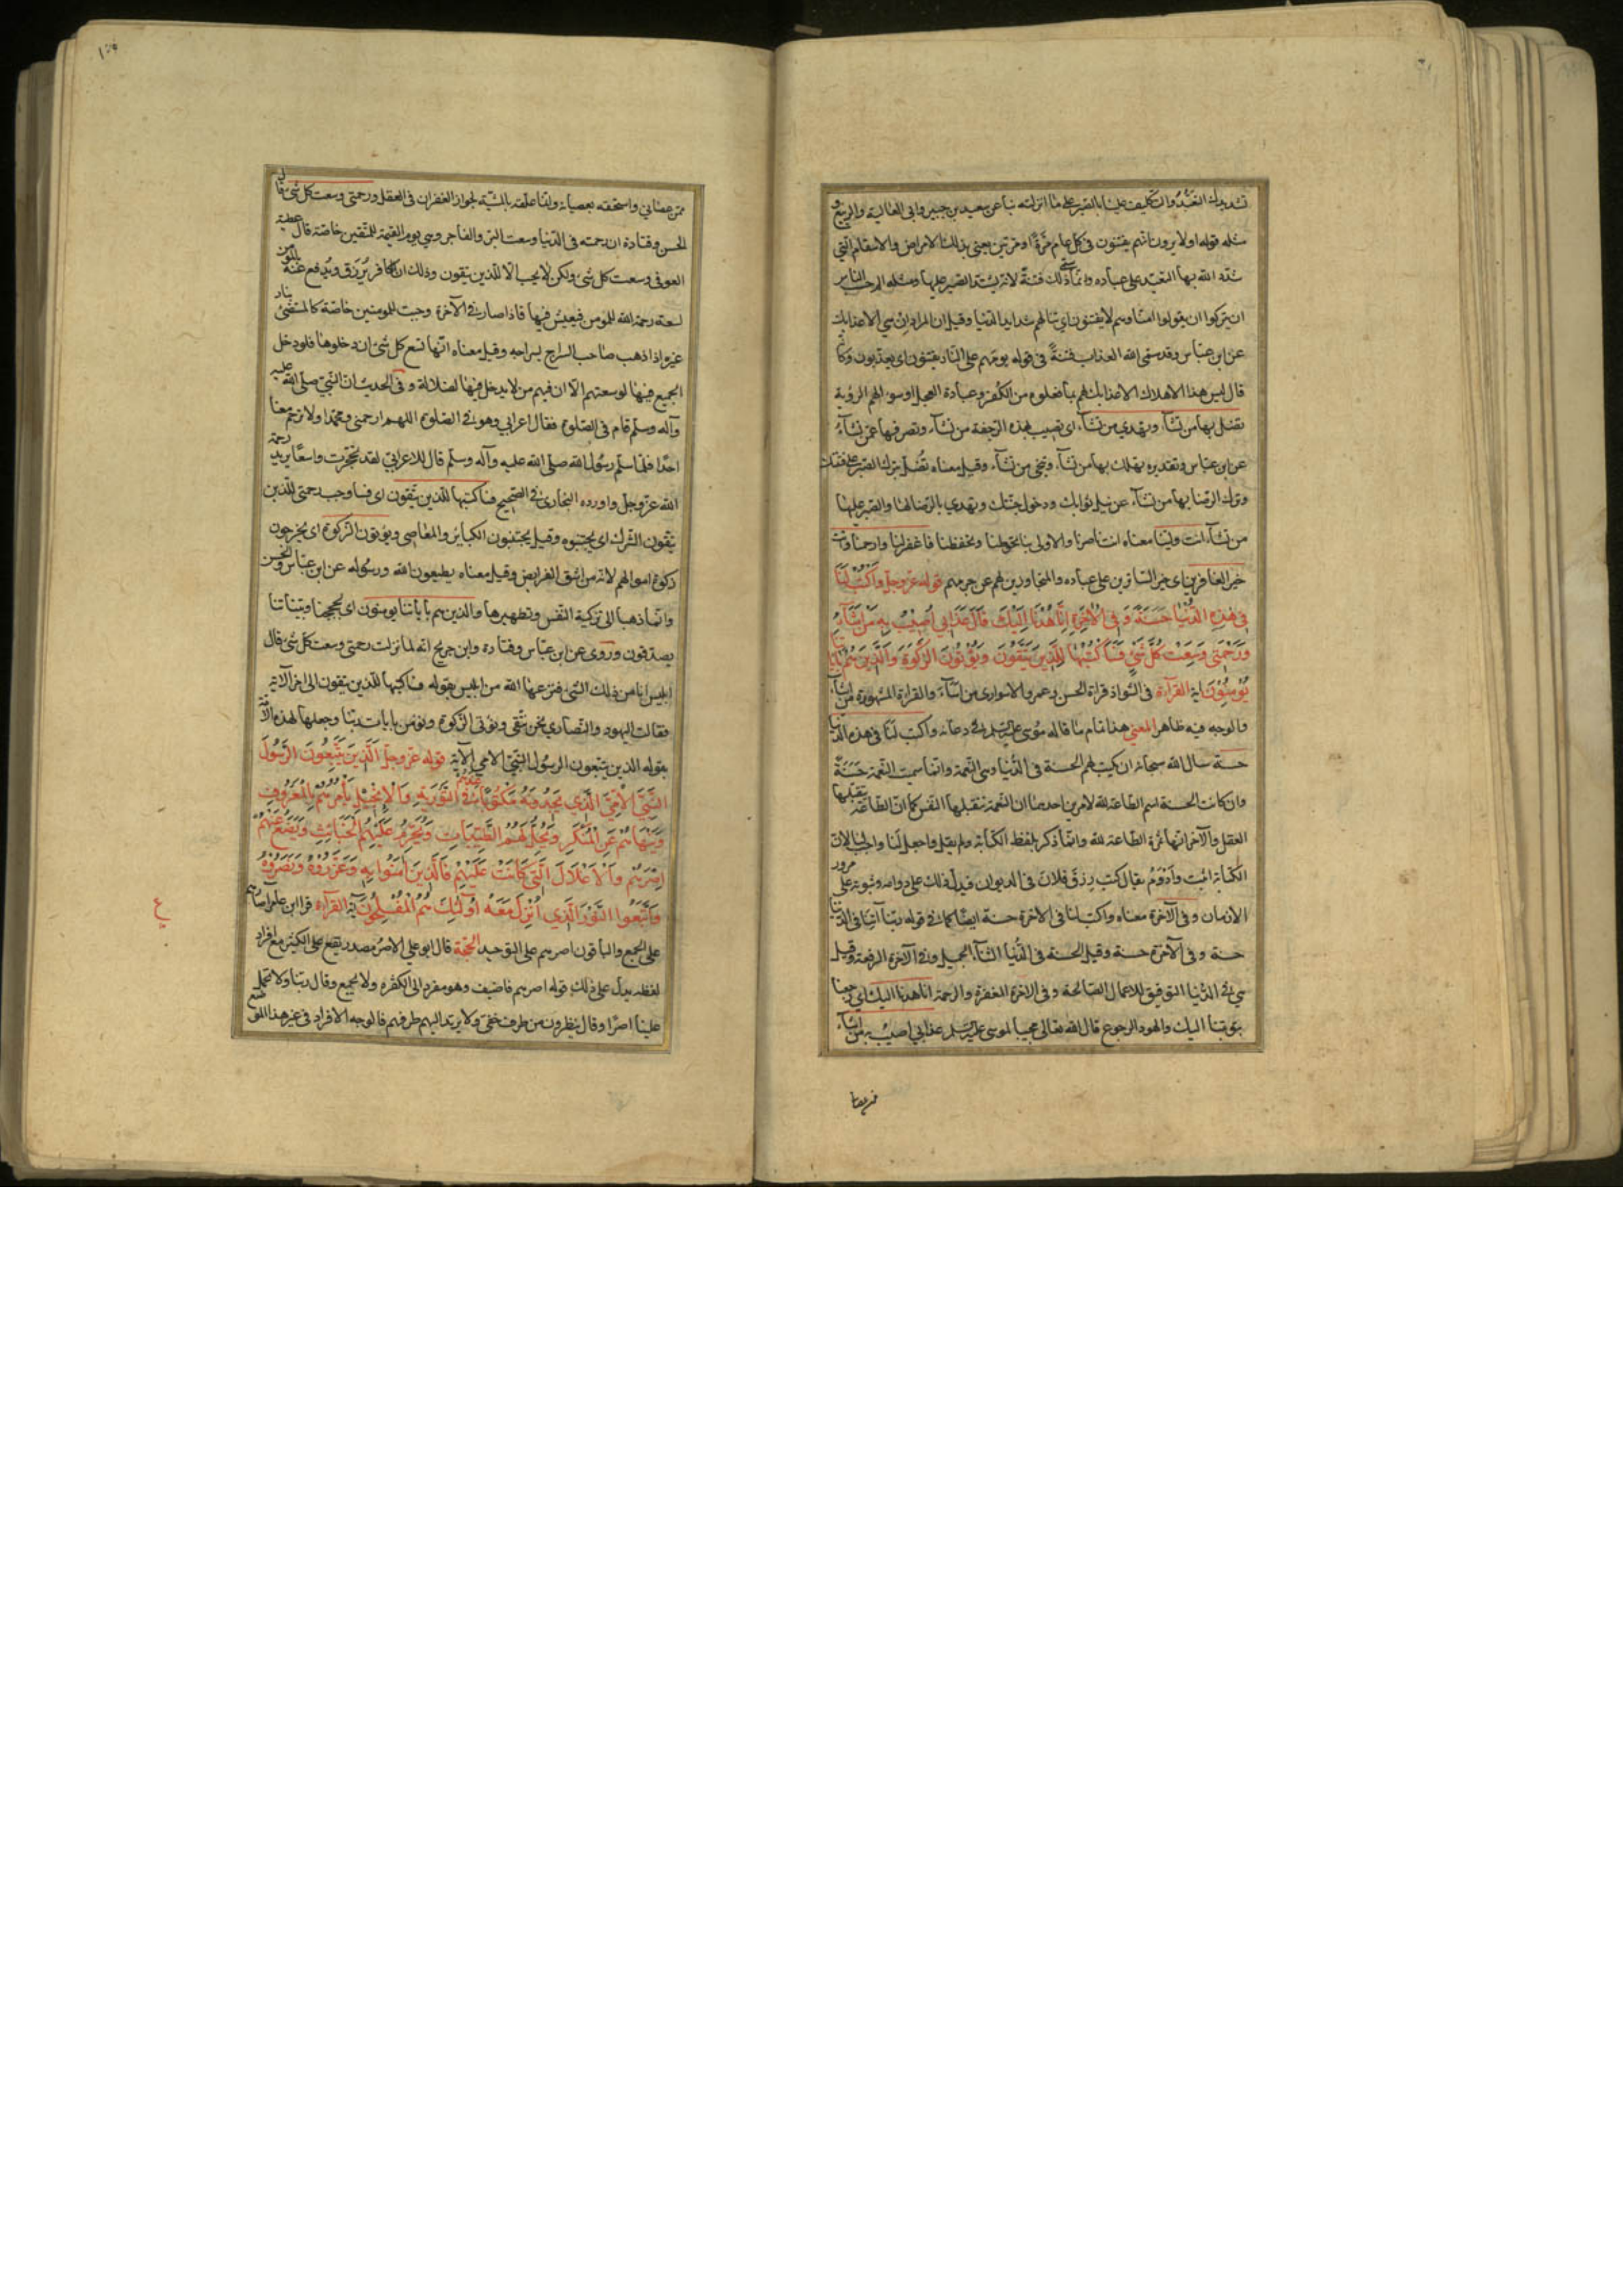 تشديدك التعبد والتكليف علينا بالصبر على ما انزلته بنا عن سعيد بن جبير وابي العالية والربيع و
مثله قوله اولا يرون انهم يفتنون في كل عام مرة او مرتين يعني بذلك الامراض والاسقام التي
شدد الله بها التعبد على عباده وانما سمى ذلك فتنة لانه يشتد الصبر عليها ومثله الم احسب الناس
ان يتركوا ان يقولوا امنا وهم لا يفتنون اي ينالهم شدايد الدنيا وقيل ان المراد ان هي الا عذابك
عن ابن عباس وقد سمى الله العذاب فتنة في قوله يوم هم على النار يفتنون اي يعذبون وكأنه
قال ليس هذا الاهلاك الا عذابك لهم بما فعلوه من الكفر وعبادة العجل او سؤالهم الرؤية
تضل بها من تشآء وتهدي من تشآء اي تصيب بهذه الرجفة من تشآء وتصرفها عمن تشآء
عن ابن عباس وتقديره تهلك بها من تشآء وتنجي من تشآء وقيل معناه تضل بترك الصبر على فتنتك
وترك الرضا بها من تشآء عن نيل ثوابك ودخول جنتك وتهدي بالرضا لها والصبر عليها
من تشآء انت ولينا معناه انت ناصرنا والاولى بنا تحوطنا وتحفظنا فاغفر لنا وارحمنا وانت
خير الغافرين اي خير الساترين على عباده والمتجاوزين لهم عن جرمهم قوله عز وجل واكتب لنا
في هذه الدنيا حسنة وفي الاخرة انا هدنا اليك قال عذابي اصيب به من اشآء
ورحمتي وسعت كل شئ فساكتبها للذين يتقون ويؤتون الزكوة والذين هم باياتنا
يؤمنون اية القرآءة في الشواذ قراءة الحسن وعمرو الاسواري من اسآء والقراءة المشهورة من اشآء
والوجه فيه ظاهر المعني هذا تمام ما قاله موسى عليه السلم في دعائه واكتب لنا في هذه الدنيا
حسنة سال الله سبحانه ان يكتب لهم الحسنة في الدنيا وهي النعمة وانما سميت النعمة حسنة
وان كانت الحسنة اسم الطاعة لله لامرين احدهما ان النعمة تتقبلها النفس كما ان الطاعة يتقبلها
العقل والآخر انها ثمرة الطاعة لله وانما ذكر بلفظ الكتابة ولم يقل واجعل لنا واوجب لنا لان
الكتابة اثبت وادوم يقال كتب رزق فلان في الديوان فيدل ذلك على دوامه وثبوته على مرور
الازمان وفي الآخرة معناه واكتب لنا في الاخرة حسنة ايضا كما في قوله ربنا آتنا في الدنيا
حسنة وفي الآخرة حسنة وقيل الحسنة في الدنيا الثنآء الجميل وفي الآخرة الرفعة وقيل
هي في الدنيا التوفيق للاعمال الصالحة وفي الاخرة المغفرة والرحمة انا هدنا اليك اي رجعنا
بتوبتنا اليك والهود الرجوع قال الله تعالى مجيبا لموسى عليه السلم عذابي اصيب به من اشآء
ممن عصاني واستحقه بعصيانه وانما علقه بالمشية لجواز الغفران في العقل ورحمتي وسعت كل شئ قال
الحسن وقتادة ان رحمته في الدنيا وسعت البر والفاجر وهي يوم القيمة للمتقين خاصة قال عطية
العوفي وسعت كل شئ ولكن لا يجب الا للذين يتقون وذلك ان الكافر يرزق ويدفع عنه بالمؤمن
لسعة رحمة الله للمؤمن فيعيش فيها فاذا صار في الآخرة وجبت للمؤمنين خاصة كالمستضئ بنار
غيره اذا ذهب صاحب السراج بسراجه وقيل معناه انها تسع كل شئ ان دخلوها فلو دخل
الجميع فيها لوسعتهم الا ان فيهم من لا يدخل فيها لضلالة وفي الحديث ان النبي صلى الله عليه
وآله وسلم قام في الصلوة فقال اعرابي وهو في الصلوة اللهم ارحمني ومحمدا ولا ترحم معنا
احدا فلما سلم رسول الله صلى الله عليه وآله وسلم قال للاعرابي لقد تحجرت واسعا يريد رحمة
الله عز وجل واورده البخاري في الصحيح فساكتبها للذين يتقون اي فساوجب رحمتي للذين
يتقون الشرك اي يجتنبوه وقيل يجتنبون الكبائر والمعاصي ويؤتون الزكوة اي يخرجون
زكوة اموالهم لانه من اشق الفرايض وقيل معناه يطيعون الله ورسوله عن ابن عباس والحسن
وانما ذهبا الى تزكية النفس وتطهيرها والذين هم باياتنا يؤمنون اي بحججنا وبيناتنا
يصدقون وروى عن ابن عباس وقتادة وابن جريح انه لما نزلت ورحمتي وسعت كل شئ قال
ابليس انا من ذلك الشئ فنزعها الله من ابليس بقوله فساكتبها للذين يتقون الى اخر الآية
فقالت اليهود والنصاري نحن نتقي ونؤتي الزكوة ونؤمن بايات ربنا وجعلها لهذه الامة
بقوله الذين يتبعون الرسول النبي الامي الآية قوله عز وجل الذين يتبعون الرسول
النبي الامي الذي يجدونه مكتوبا عندهم في التورية والانجيل يأمرهم بالمعروف
وينهاهم عن المنكر ويحل لهم الطيبات ويحرم عليهم الخبائث ويضع عنهم
اصرهم والاغلال التي كانت عليهم فالذين امنوا به وعزروه ونصروه
واتبعوا النور الذي انزل معه اولئك هم المفلحون آية القرآءة قرا ابن عامر آصارهم
على الجمع والباقون اصرهم على التوحيد الحجة قال ابو علي الاصر مصدر يقع على الكثير مع افراد
لفظه يدل على ذلك قوله اصرهم فاضيف وهو مفرد الى الكثرة ولا يجمع وقال ربنا ولا تحمل
علينا اصرا وقال ينظرون من طرف خفي ولا يرتد اليهم طرفهم فالوجه الافراد في غير هذا الموضع